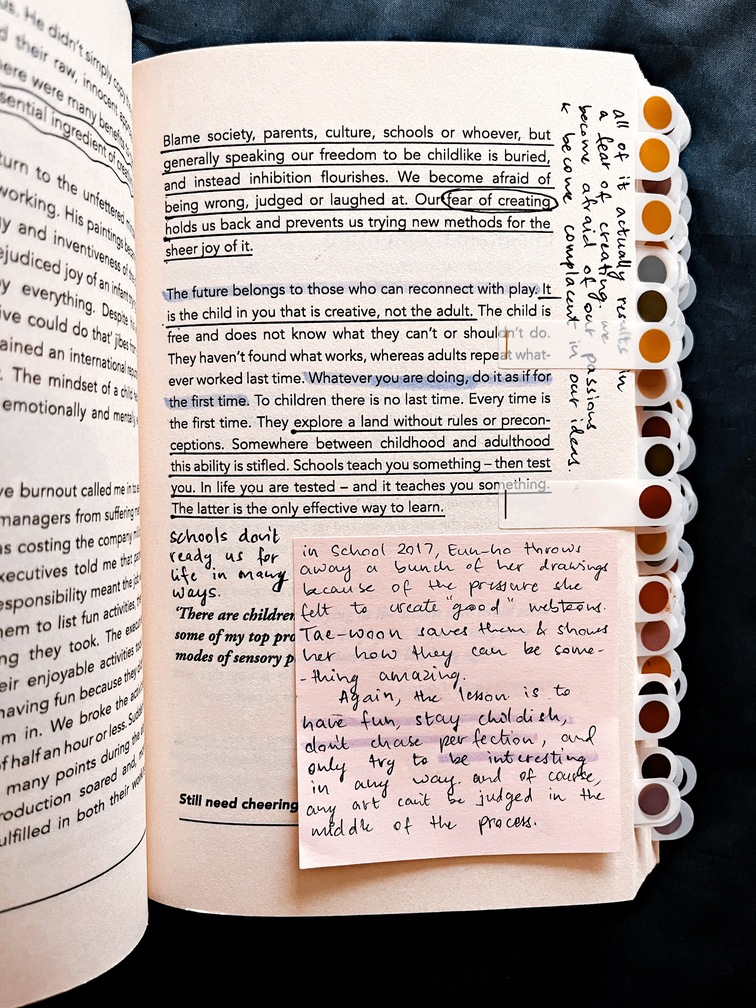 us. He didn't simply copy
their raw, innocent
ere were many benefits
sential ingredient of
turn to the unfettered
working. His paintings
y and inventiveness of the
ejudiced joy of an infant
y everything. Despite
ive could do that' jibes from
ained an international
. The mindset of a child
emotionally and mentally
ve burnout called me in to
managers from suffering
as costing the company
xecutives told me that
esponsibility meant the
hem to list fun activities,
ng they took. The
eir enjoyable activities
having fun because they
m in. We broke the
of half an hour or less.
many points during the
roduction soared and,
ulfilled in both their
Blame society, parents, culture, schools or whoever, but
generally speaking our freedom to be childlike is buried,
and instead inhibition flourishes. We become afraid of
being wrong, judged or laughed at. Our fear of creating
holds us back and prevents us trying new methods for the
sheer joy of it.
The future belongs to those who can reconnect with play. It
is the child in you that is creative, not the adult. The child is
free and does not know what they can't or shouldn't do.
They haven't found what works, whereas adults repeat what-
ever worked last time. Whatever you are doing, do it as if for
the first time. To children there is no last time. Every time is
the first time. They explore a land without rules or precon-
ceptions. Somewhere between childhood and adulthood
this ability is stifled. Schools teach you something – then test
you. In life you are tested – and it teaches you something.
The latter is the only effective way to learn.
all of it actually results in
a fear of creating, we
become afraid of our passions
& become complacent in our ideas.
schools don't
ready us for
life in many
ways.
'There are children
some of my top pro
modes of sensory p
Still need cheering
in School 2017, Eun-ho throws
away a bunch of her drawings
because of the pressure she
felt to create "good" webtoons.
Tae-woon saves them & shows
her how they can be some-
-thing amazing.
Again, the lesson is to
have fun, stay childish,
don't chase perfection, and
only try to be interesting
in any way. and of course,
any art can't be judged in the
middle of the process.